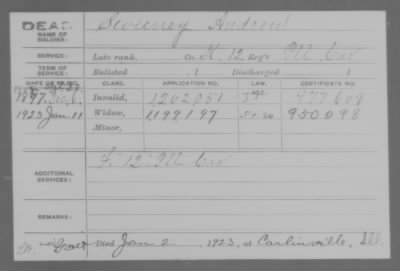 DEAD
NAME OF SOLDIER: Sweeney Andrew
SERVICE: Late rank, Co. K, 12 Reg't Ill Cav
TERM OF SERVICE: Enlisted , 1 Discharged , 1
DATE OF FILING. CLASS. APPLICATION NO. LAW. CERTIFICATE NO.
1897 Invalid, 1202051 977609
1923 Jan 11 Widow, 1199197 950098
Minor,
ADDITIONAL SERVICES: F. 12 Ill Cav
REMARKS:
Died Jan 2, 1923, at Carlinville, Ill.